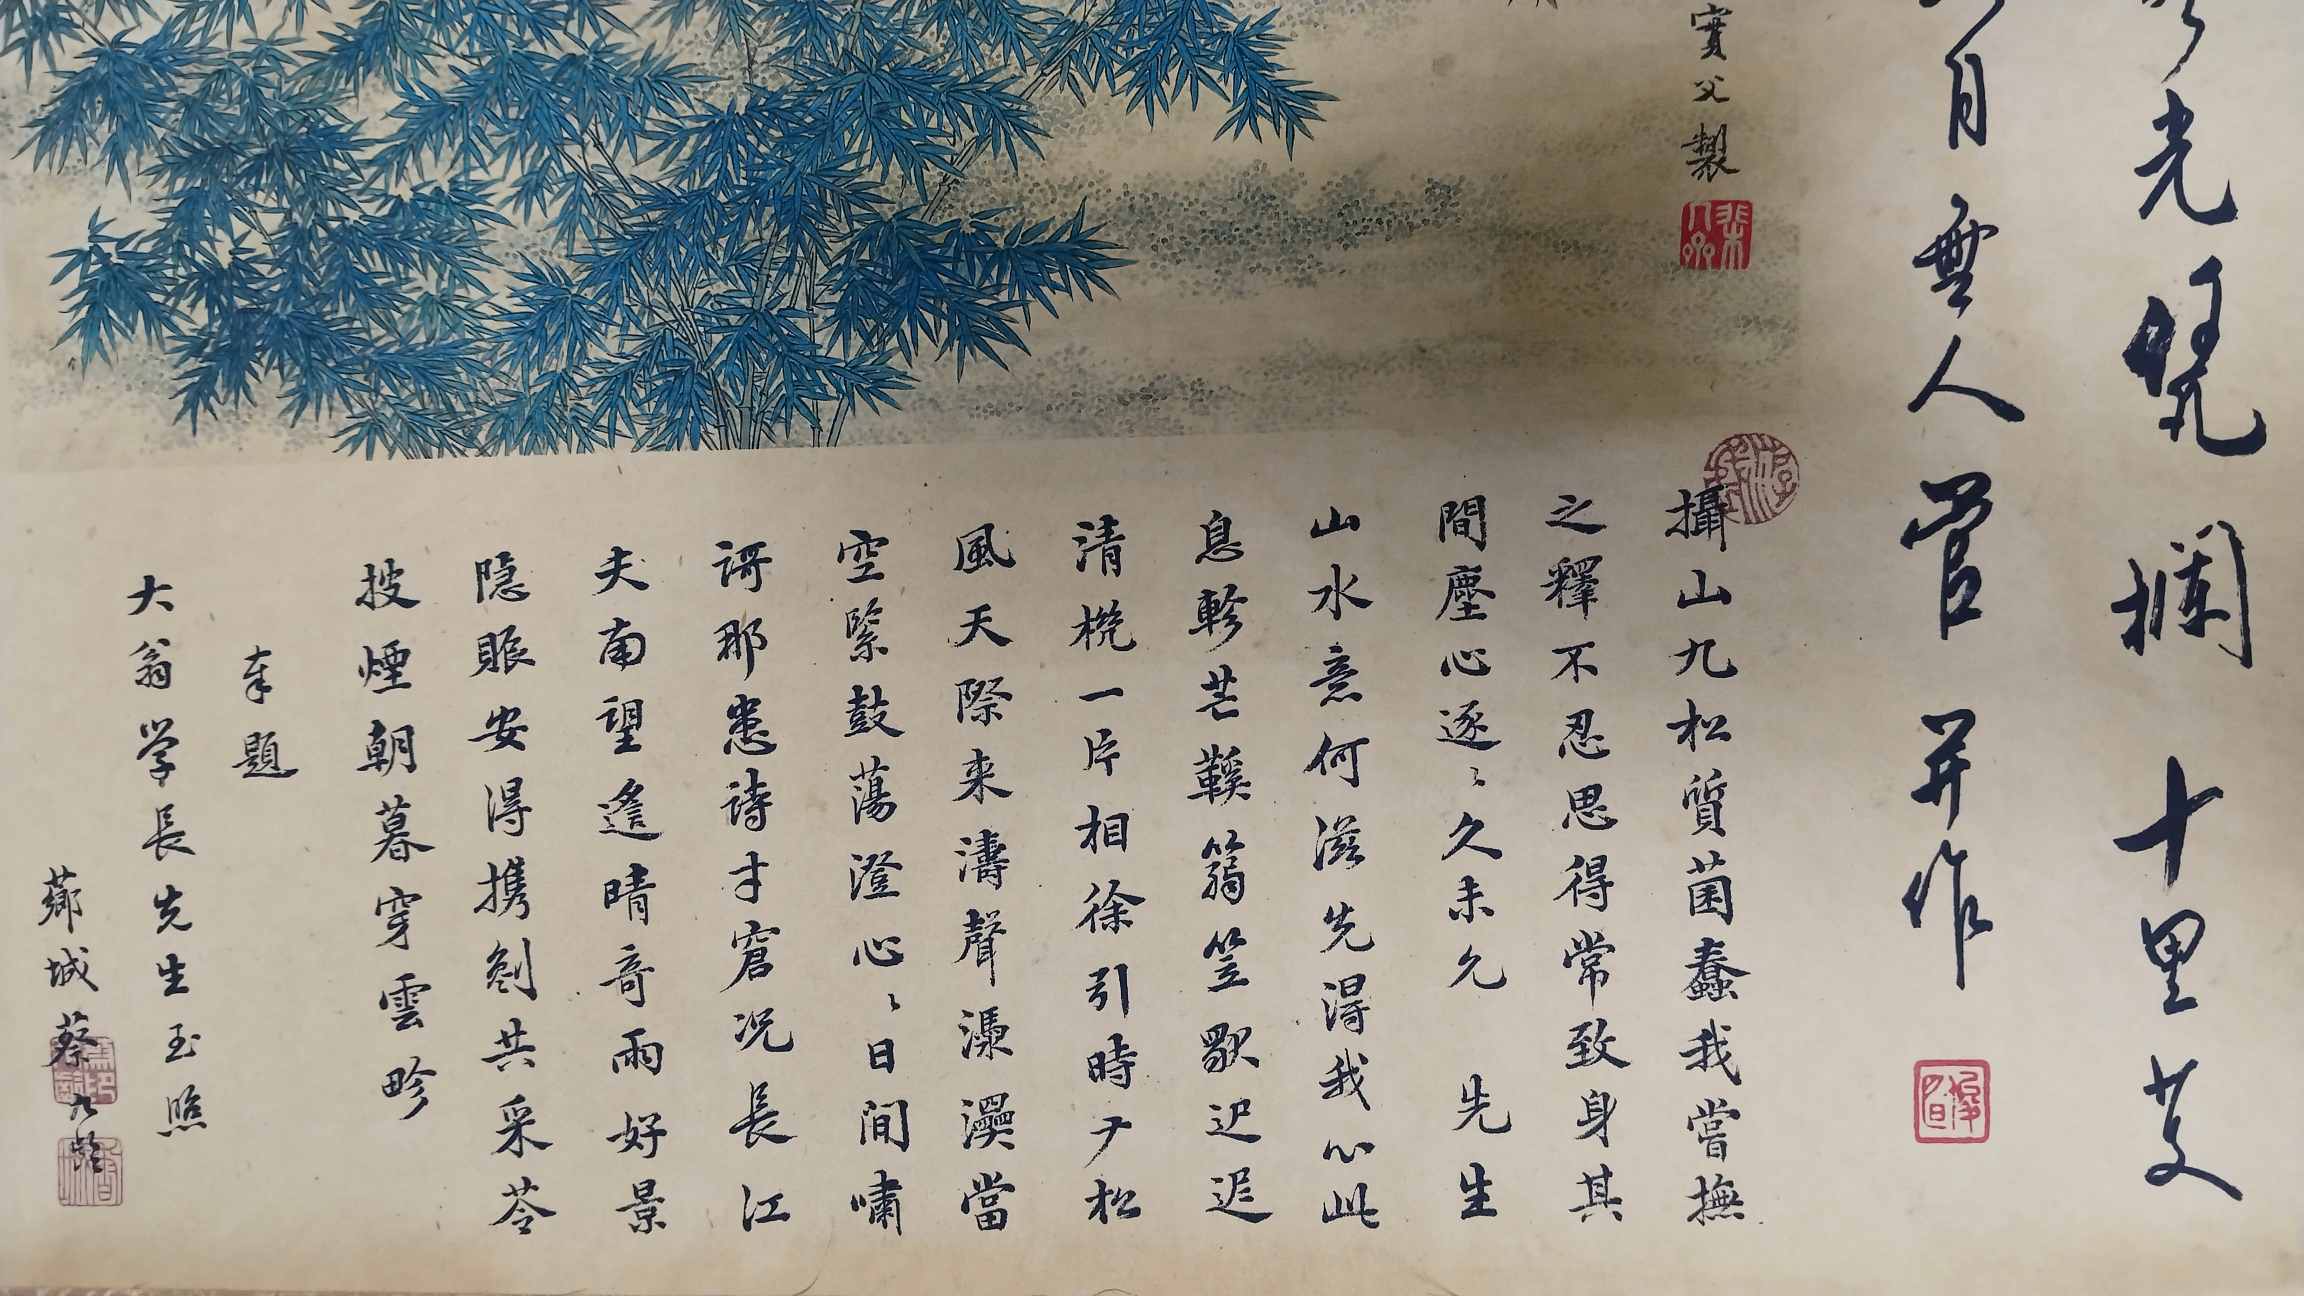 光凳擱十里芰
月無人管并作
實父製
攝山九松質菌蠢我嘗撫
之釋不忍思得常致身其
間塵心逐〻久未允 先生
山水意何滋先得我心此
息軫芒鞵篛笠歇迟迟
清樾一片相徐引時尹松
風天際来濤聲瀑澩當
空緊鼓蕩澄心〻日間嘯
謌那悉詩才窘况長江
夫南望遙晴竒雨好景
隐賬安得携劍共采苓
披煙朝暮穿雲畛
奉題
大翁学長先生玉照
薌城蔡九齡